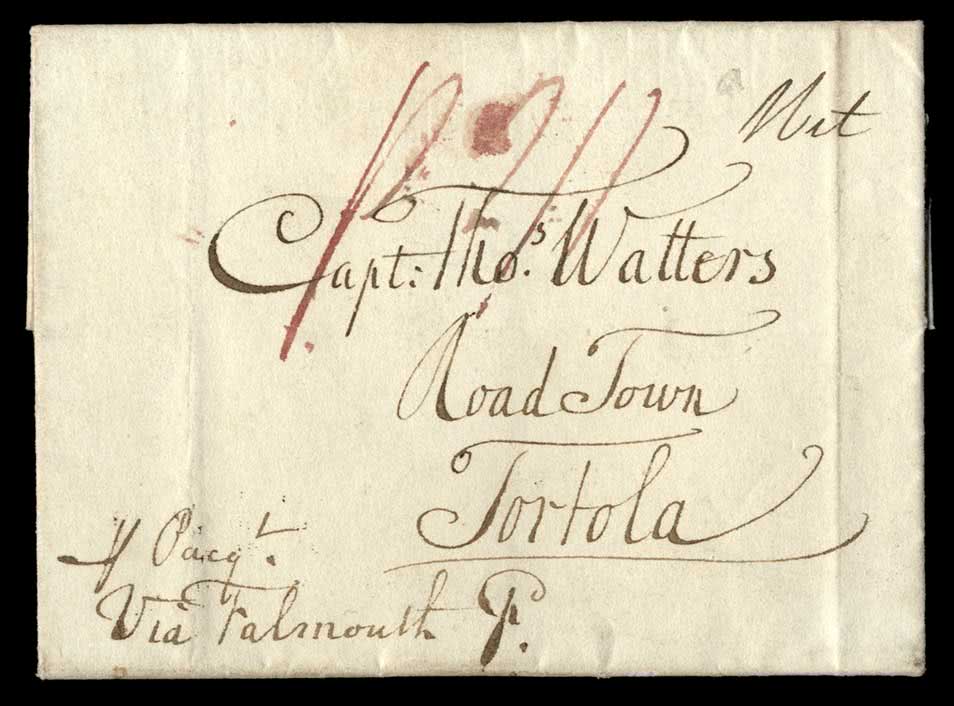 Capt: Tho.s Watters
Road Town
Tortola
⅌ Pacqt.
Via Falmouth P.